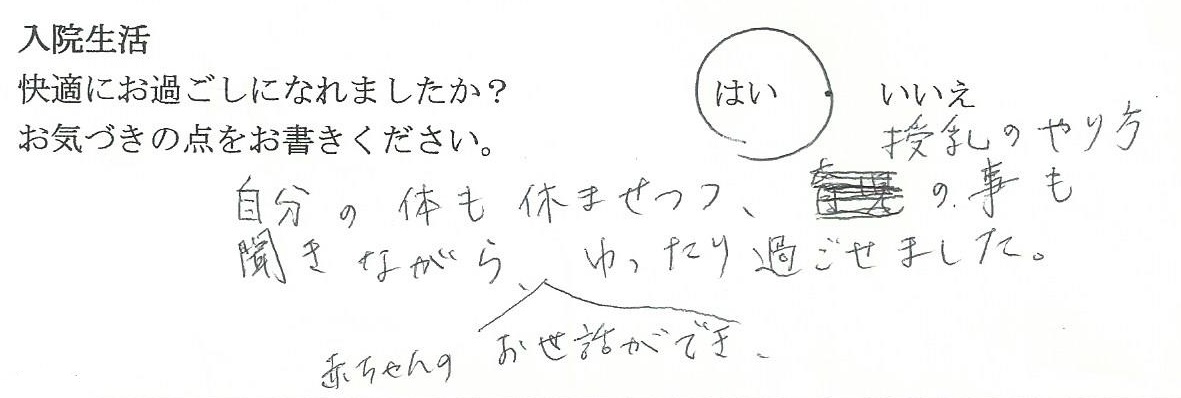 入院生活
快適にお過ごしになれましたか？
はい いいえ
お気づきの点をお書きください。
授乳のやり方
自分の体も休ませつつ、の事も
聞きながら、ゆったり過ごせました。
赤ちゃんのお世話ができ、